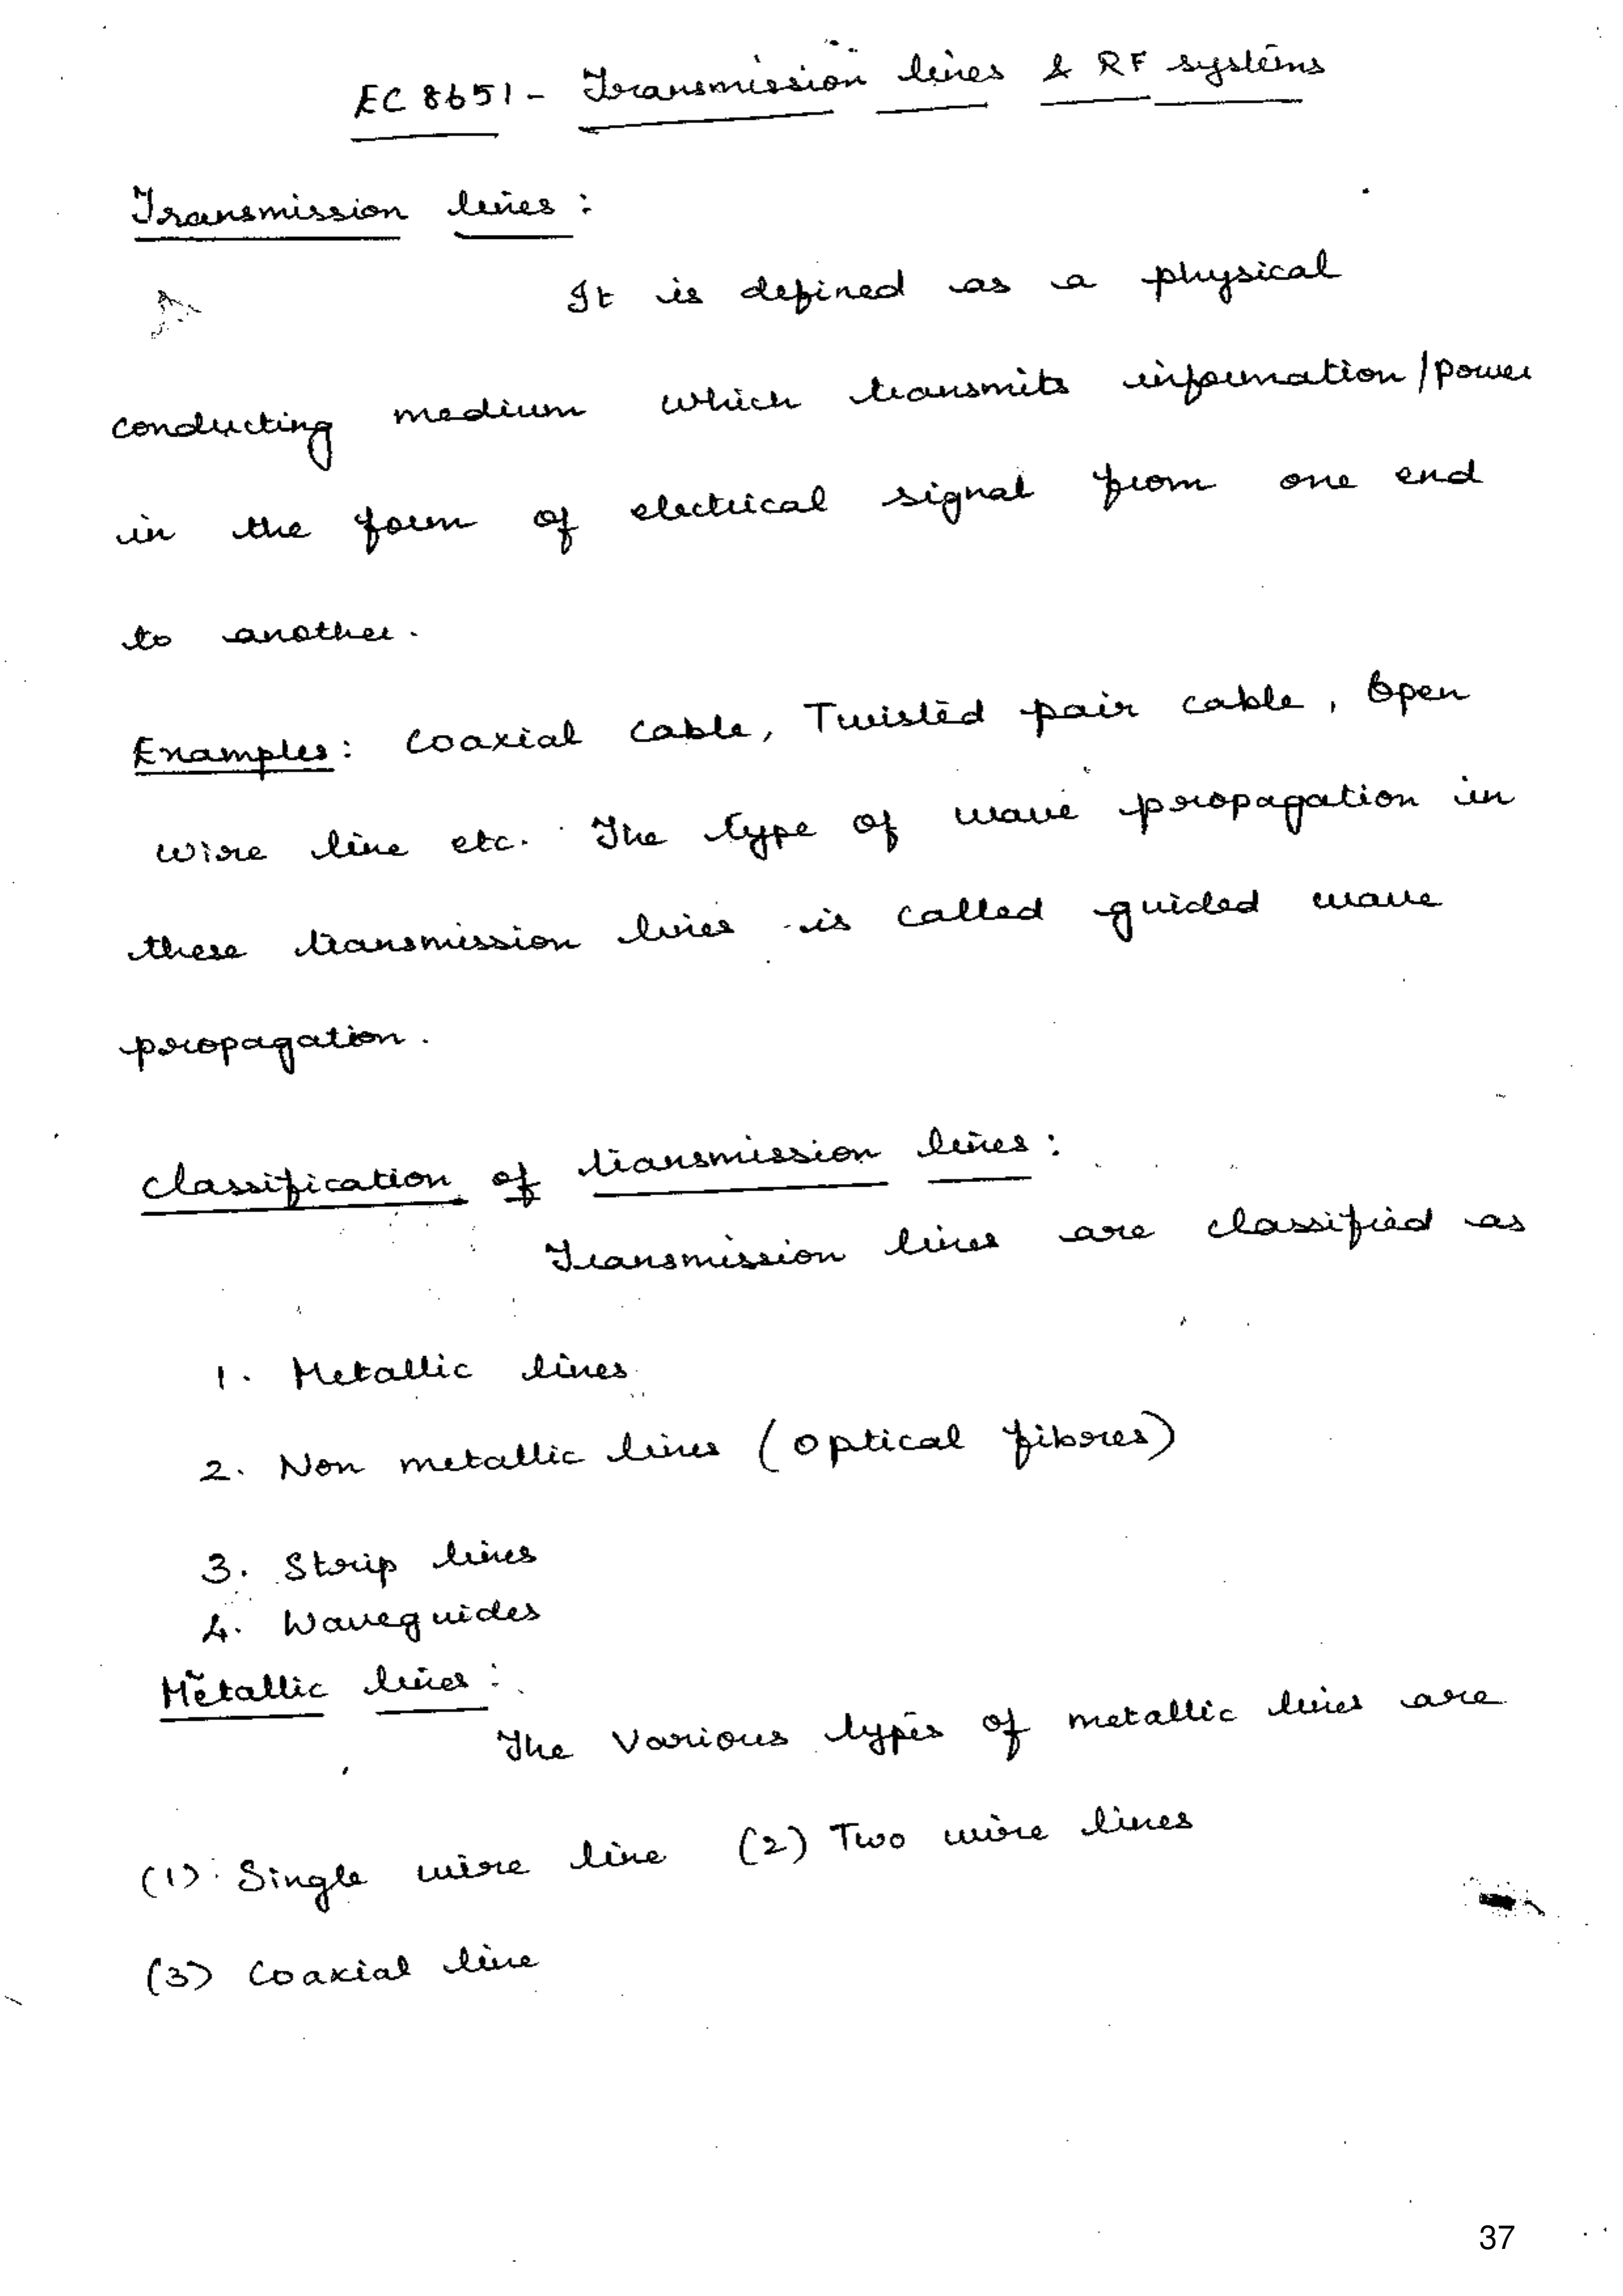 EC 8651 - Transmission lines & RF systems
Transmission lines :
It is defined as a physical
conducting medium which transmits information/power
in the form of electrical signal from one end
to another.
Examples : Coaxial cable, Twisted pair cable, Open
wire line etc. The type of wave propagation in
these transmission lines is called guided wave
propagation.
Classification of transmission lines :
Transmission lines are classified as
1. Metallic lines
2. Non metallic lines (Optical fibres)
3. Strip lines
4. Waveguides
Metallic lines :
The Various types of metallic lines are
(1) Single wire line (2) Two wire lines
(3) Coaxial line
37